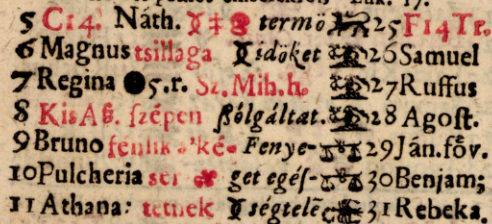 5 C14. Nath. termö 25 F14Tr.
6 Magnus tsillaga idöket 26 Samuel
7 Regina 5.r. Sz. Mih. h. 27 Ruffus
8 Kis Aſſ. ſzépen ſzólgáltat. 28 Agoſt.
9 Bruno Fenye- 29 Ján. főv.
10 Pulcheria get egéſ- 30 Benjam;
11 Athana: tetnek ségtelē 31 Rebeka